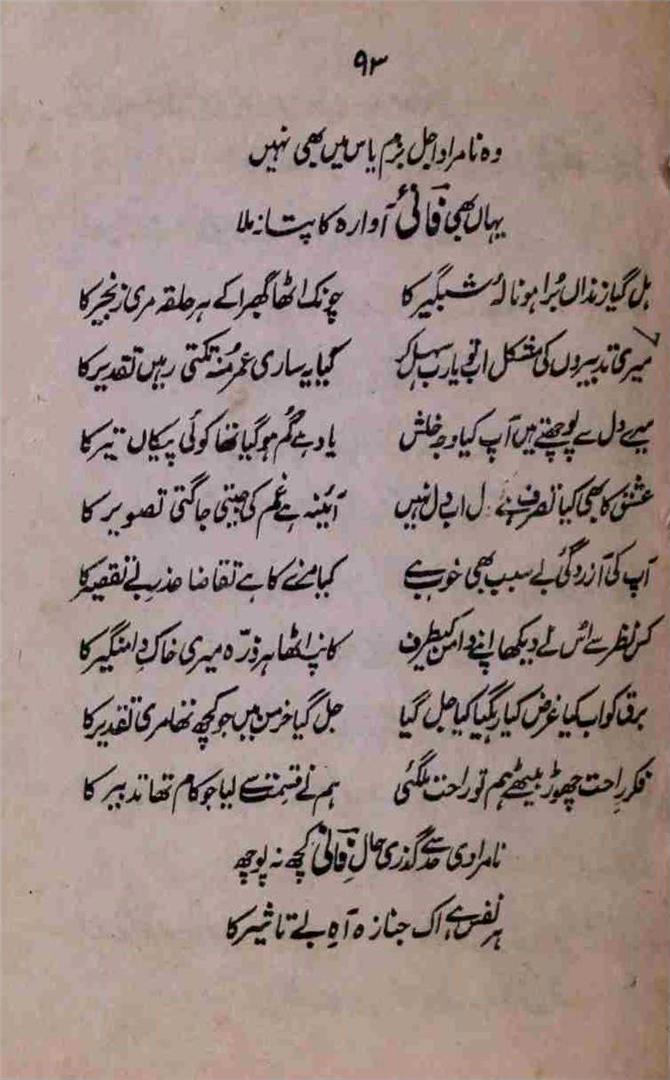 ۹۳
وہ نامراد اجل بزم یاس میں بھی نہیں
یہاں بھی فانیؔ آوارہ کا پتا نہ ملا
ہل گیا زنداں بُرا ہو نالۂ شبگیر کا چونک اٹھا گھبرا کے ہر حلقہ مری زنجیر کا
میری تدبیروں کی مشکل اب تو یارب سہل کر کیا یہ ساری عمر مُنہ تکتی رہیں تقدیر کا
میرے دل سے پوچھتے ہیں آپ کیا وجہ خلش یاد ہے گُم ہو گیا تھا کوئی پیکاں تیر کا
عشق کا بھی کیا تصرف ہے دل اب دل نہیں آئینہ ہے غم کی جیتی جاگتی تصویر کا
آپ کی آزردگیٔ بے سبب بھی خوب ہے کیا مزے کا ہے تقاضا عذر بے تقصیر کا
کس نظر سے اُس نے دیکھا اپنے دامن کیطرف کانپ اٹھا ہر ذرّہ میری خاکِ دامنگیر کا
برق کو اب کیا غرض کیا رہگیا کیا جل گیا جل گیا خرمن میں جو کچھ تھا مری تقدیر کا
فکرِ راحت چھوڑ بیٹھے ہم تو راحت ملگئی ہم نے قسمت سے لیا جو کام تھا تدبیر کا
نامرادی حد سے گذری حالِ فانیؔ کچھ نہ پوچھ
ہر نفس ہے اک جنازہ آہِ بے تاثیر کا